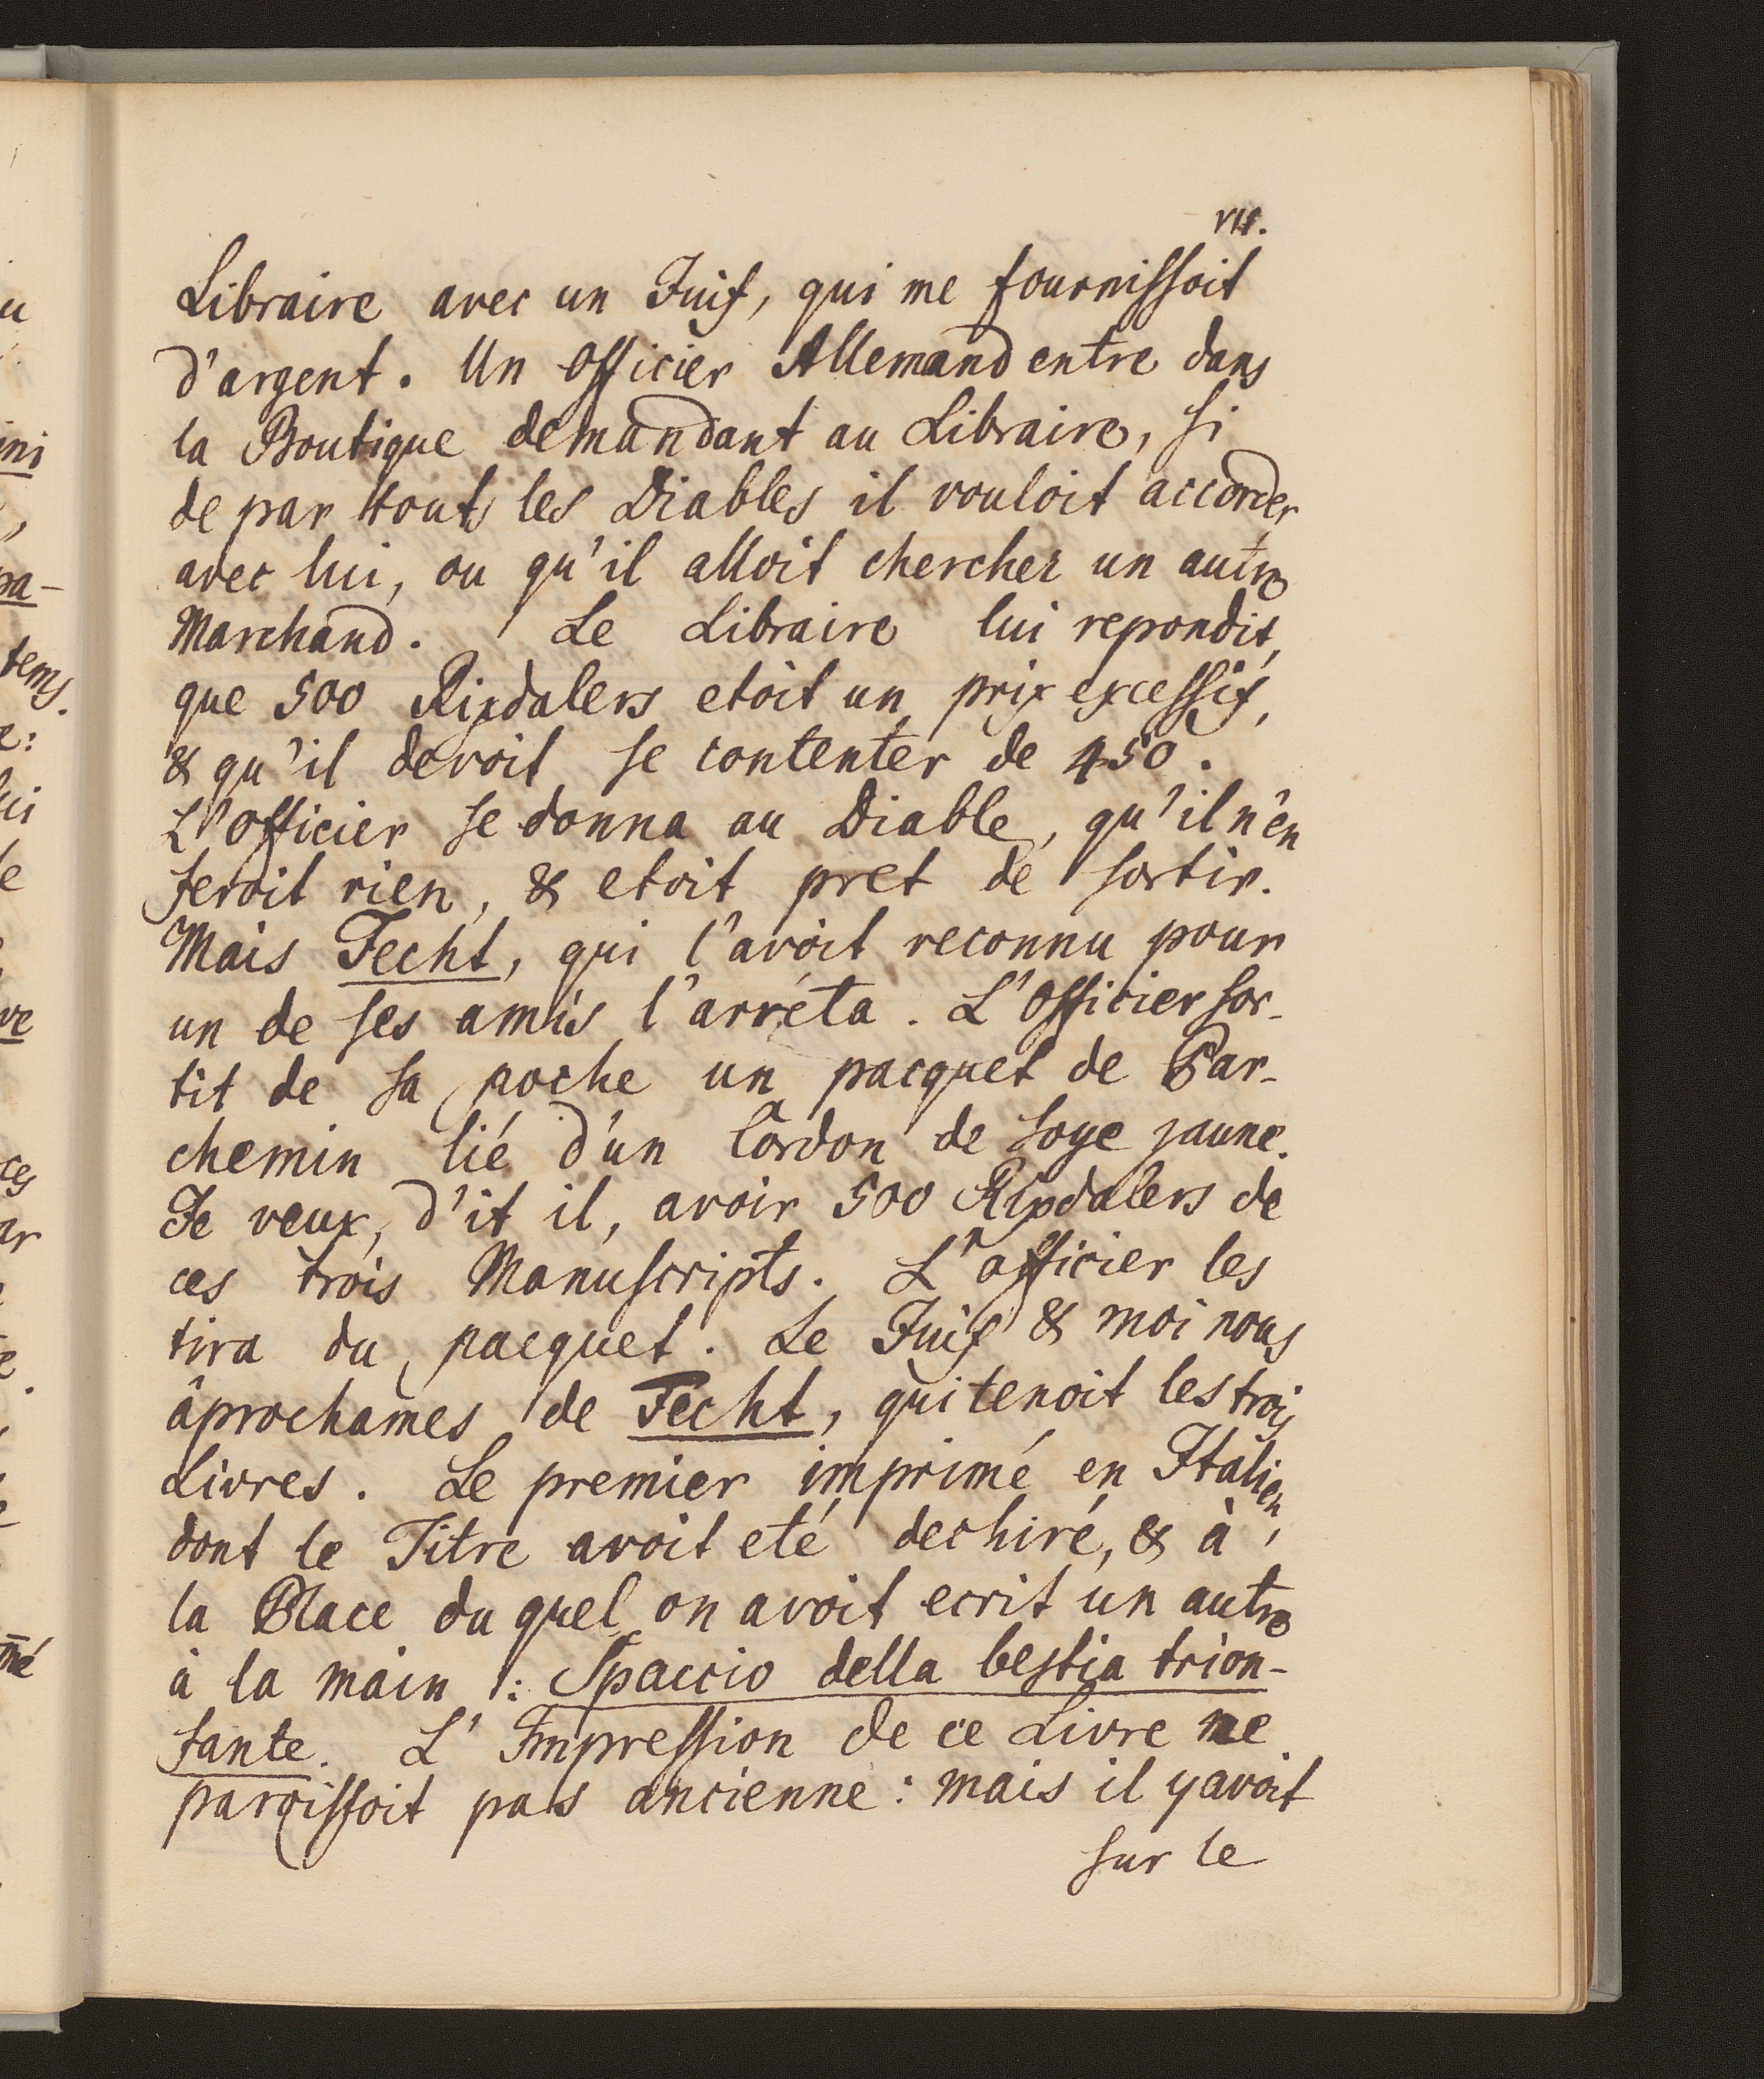 VII.
Libraire avec un Juif, qui me fournissoit
d'argent. Un Officier Allemand entre dans
la Boutique demandant au Libraire, si
de par touts les Diables il vouloit accorder
avec lui, ou qu'il alloit chercher un autre
Marchand. Le Libraire lui repondit,
que 500 Rixdalers etoit un prix excessif,
& qu'il devoit se contenter de 450.
L'Officier se donna au Diable, qu'il n'en
feroit rien, & etoit pret de sortir.
Mais Fecht, qui l'avoit reconnu pour
un de ses amis l'arréta. L'Officier sor-
tit de sa poche un pacquet de Par-
chemin lié d'un Cordon de soye jaune.
Je veux, d'it il, avoir 500 Rixdalers de
ces trois Manuscripts. L'officier les
tira du pacquet. Le Juif & moi nous
âprochames de Fecht, qui tenoit les trois
Livres. Le premier imprimé en Italien,
dont le Titre avoit eté dechiré, & à
la Place du quel on avoit ecrit un autre
à la main : Spaccio della bestia trion-
fante. L'Impression de ce Livre ne
paroissoit pas ancienne : mais il y avoit
sur le
u
ini
pa-
tems.
e:
lui
le
ve
ces
ar
né